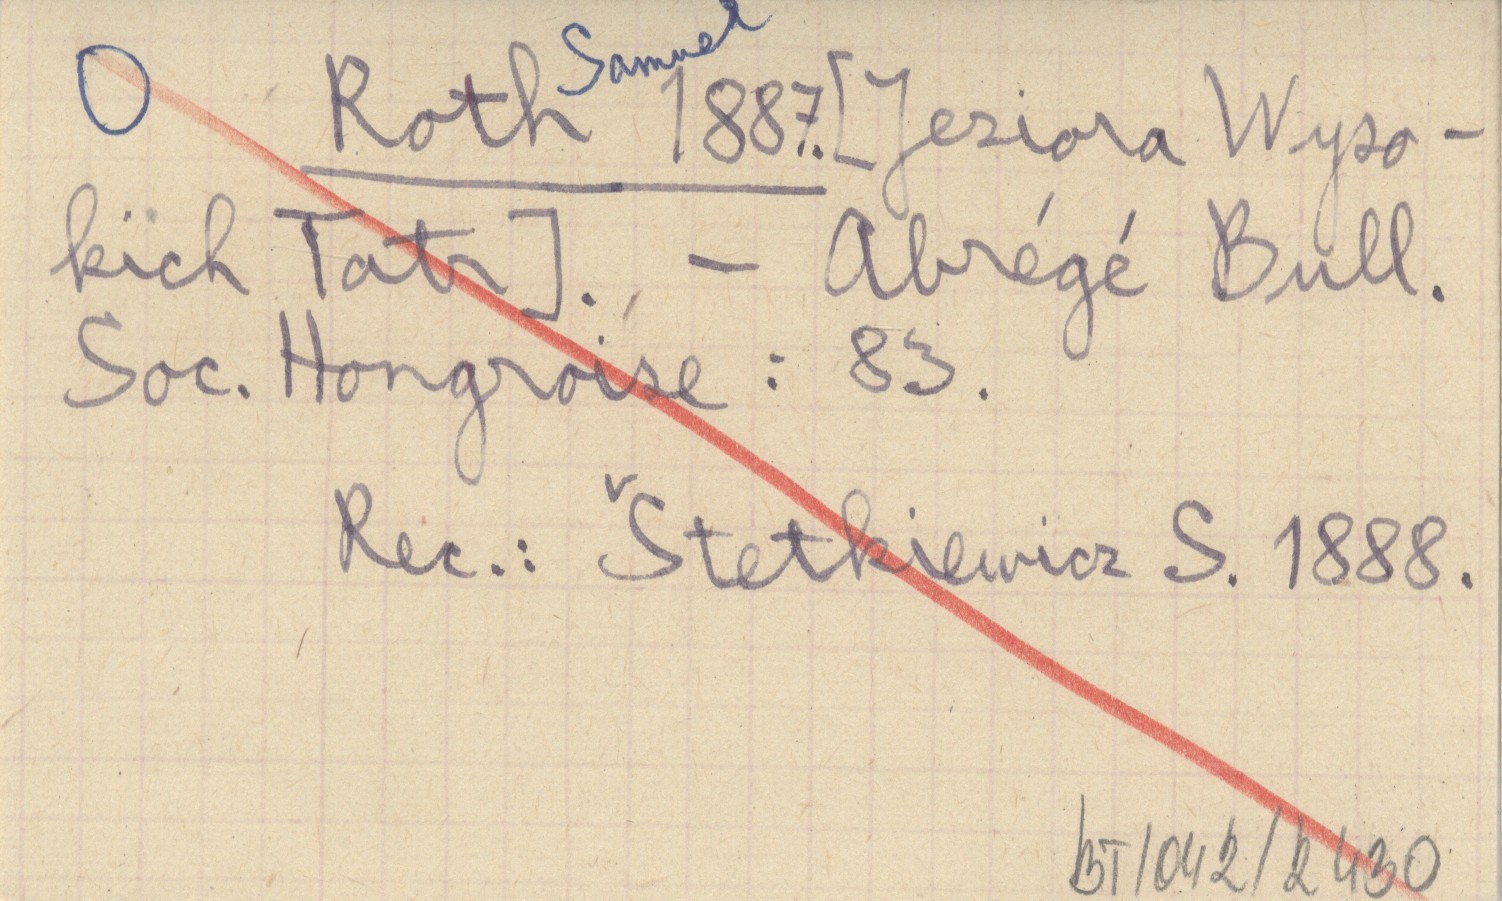 O Roth Samuel 1887. [Jeziora Wyso-
kich Tatr]. — Abrégé Bull.
Soc. Hongroise : 83.
Rec.: Štetkiewicz S. 1888.
BT/042/2430